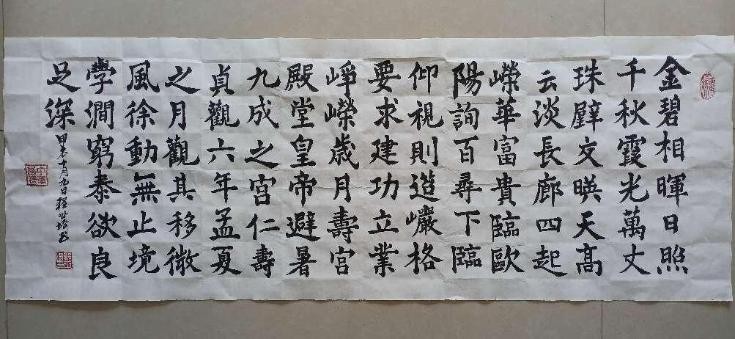 金碧相暉日照
千秋霞光萬丈
珠璧交暎天高
云淡長廊四起
嶸華富貴臨歐
陽詢百尋下臨
仰視則造巗格
要求建功立業
崢嶸歲月壽宮
殿堂皇帝避暑
九成之宮仁壽
貞觀六年孟夏
之月觀其移微
風徐動無止境
學澗窮泰欲良
足深
甲辰十月九日